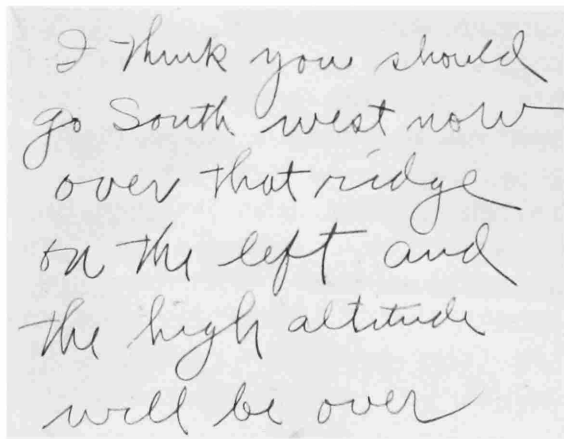 I think you should
go South west now
over that ridge
on the left and
the high altitude
will be over